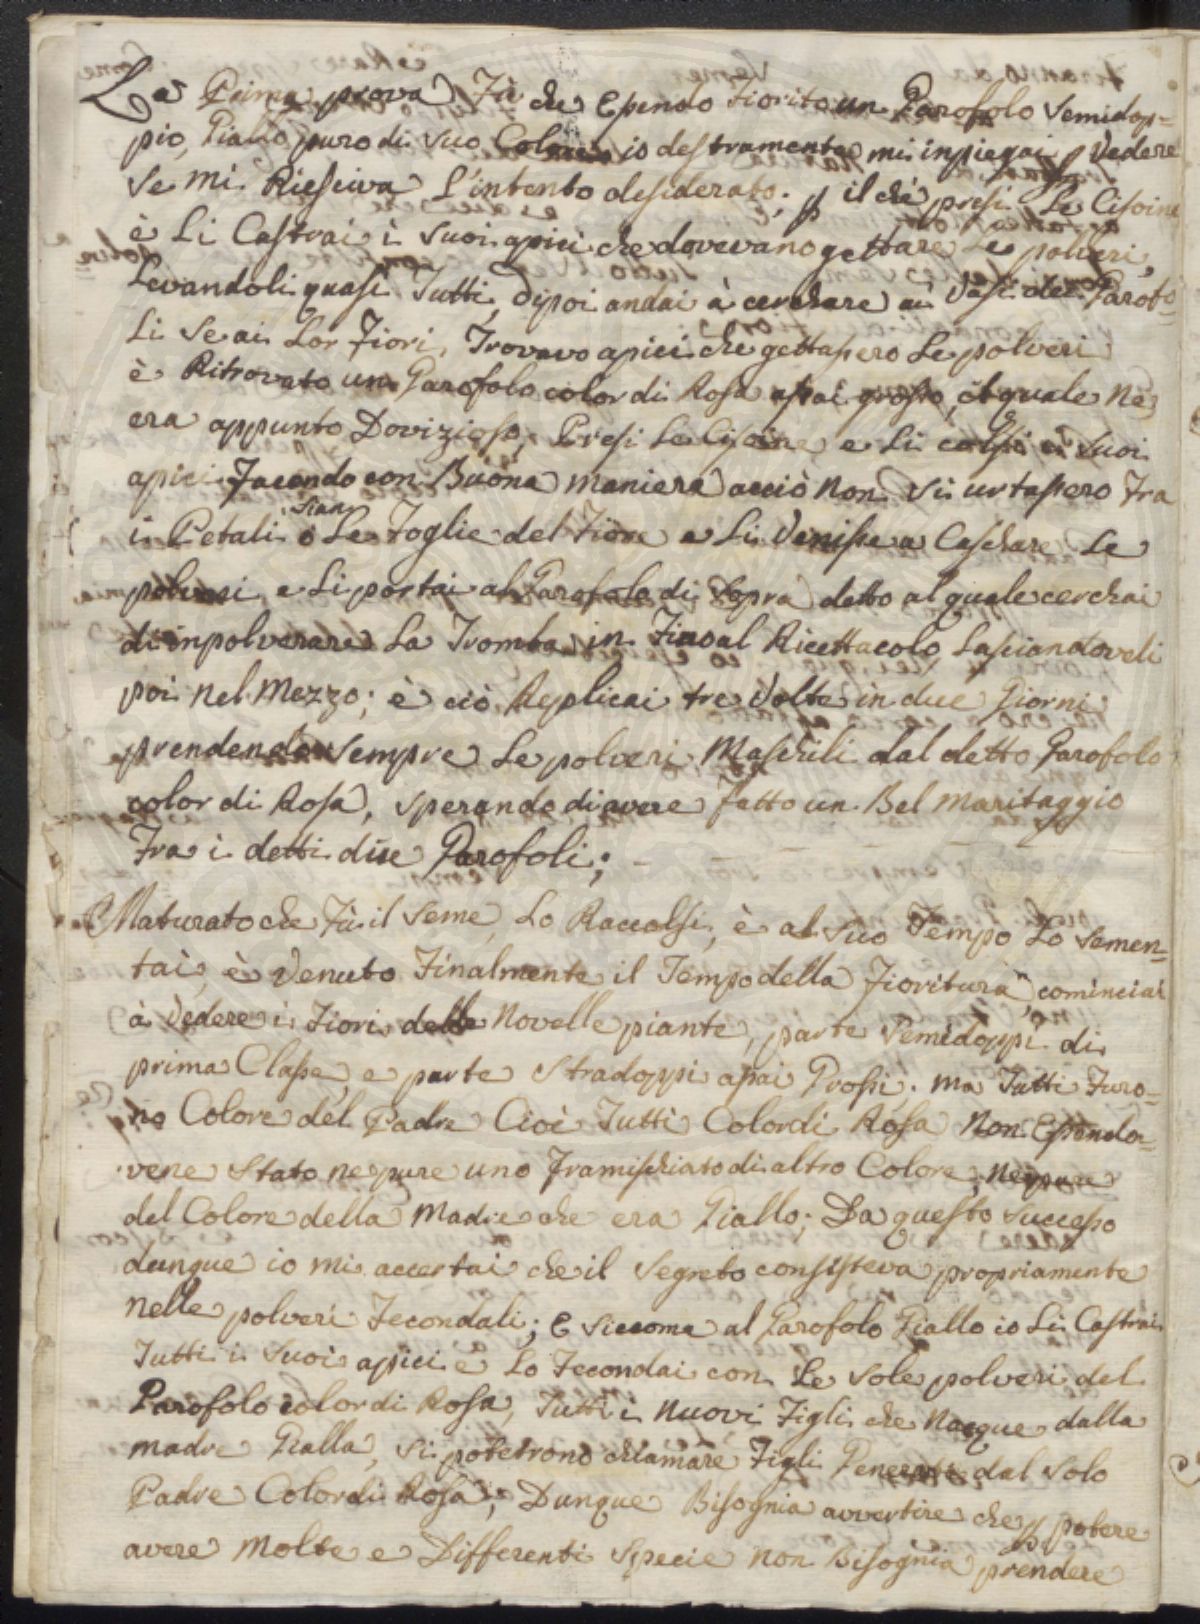 La Prima prova Fù che Essendo Fiorito un Garofolo Semidop=
pio, Giallo puro di suo Colore io destramente mi inpiegai p Vedere
se mi Riesciva l'intento desiderato; p il chè presi Le Cisoine
è Li Castrai i suoi apici che dovevano gettare Le polveri,
Levandoli quasi Tutti, dipoi andai à cerchare ai Vasi de Garofo=
Li se ai Lor Fiori, Trovavo apici che gettassero Le polveri
è Ritrovato un Garofolo color di Rosa assai grosso, il quale Ne
era appunto Dovizioso; Presi Le Cisoine e Li colsi i suoi
apici Facendo con Buona maniera acciò Non si urtassero Fra
i Petali siano Le Foglie del Fiore e Li Venisse a Caschare Le
polveri, e Li portai al Garofolo di Sopra detto al quale cerchai
di inpolverare La Tromba in Fino al Ricettacolo, Lasciandoveli
poi nel Mezzo; è ciò Replicai tre Volte in due Giorni
prendendo sempre Le polveri Maschili dal detto Garofolo
color di Rosa, sperando di avere fatto un Bel maritaggio
Fra i detti due Garofoli;
Maturato che Fù il Seme, Lo Raccolsi, è al suo Tempo Lo Semen=
tai, è Venuto Finalmente il Tempo della Fioritura, cominciai
à Vedere i Fiori delle Novelle piante, parte Semidoppi di
prima Classe, e parte Stradoppi assai Grossi; ma Tutti Furo=
no Colore del Padre Cioè Tutti Color di Rosa Non Essendo=
vene Stato neppure uno Framischiato di altro Colore, Neppure
del Colore della Madre che era Giallo; Da questo Successo
dunque io mi accertai che il Segreto consisteva propriamente
nelle polveri Fecondali; E siccome al Garofolo Giallo io Li Castrai
Tutti i suoi apici è Lo Fecondai con Le Sole polveri del
Garofolo color di Rosa, Tutti i Nuovi Figli che Nacque dalla
madre Gialla, si potetrono chiamare Figli Generati dal Solo
Padre Color di Rosa; Dunque Bisognia avvertire che p potere
avere Molte e Differenti Specie non Bisognia prendere